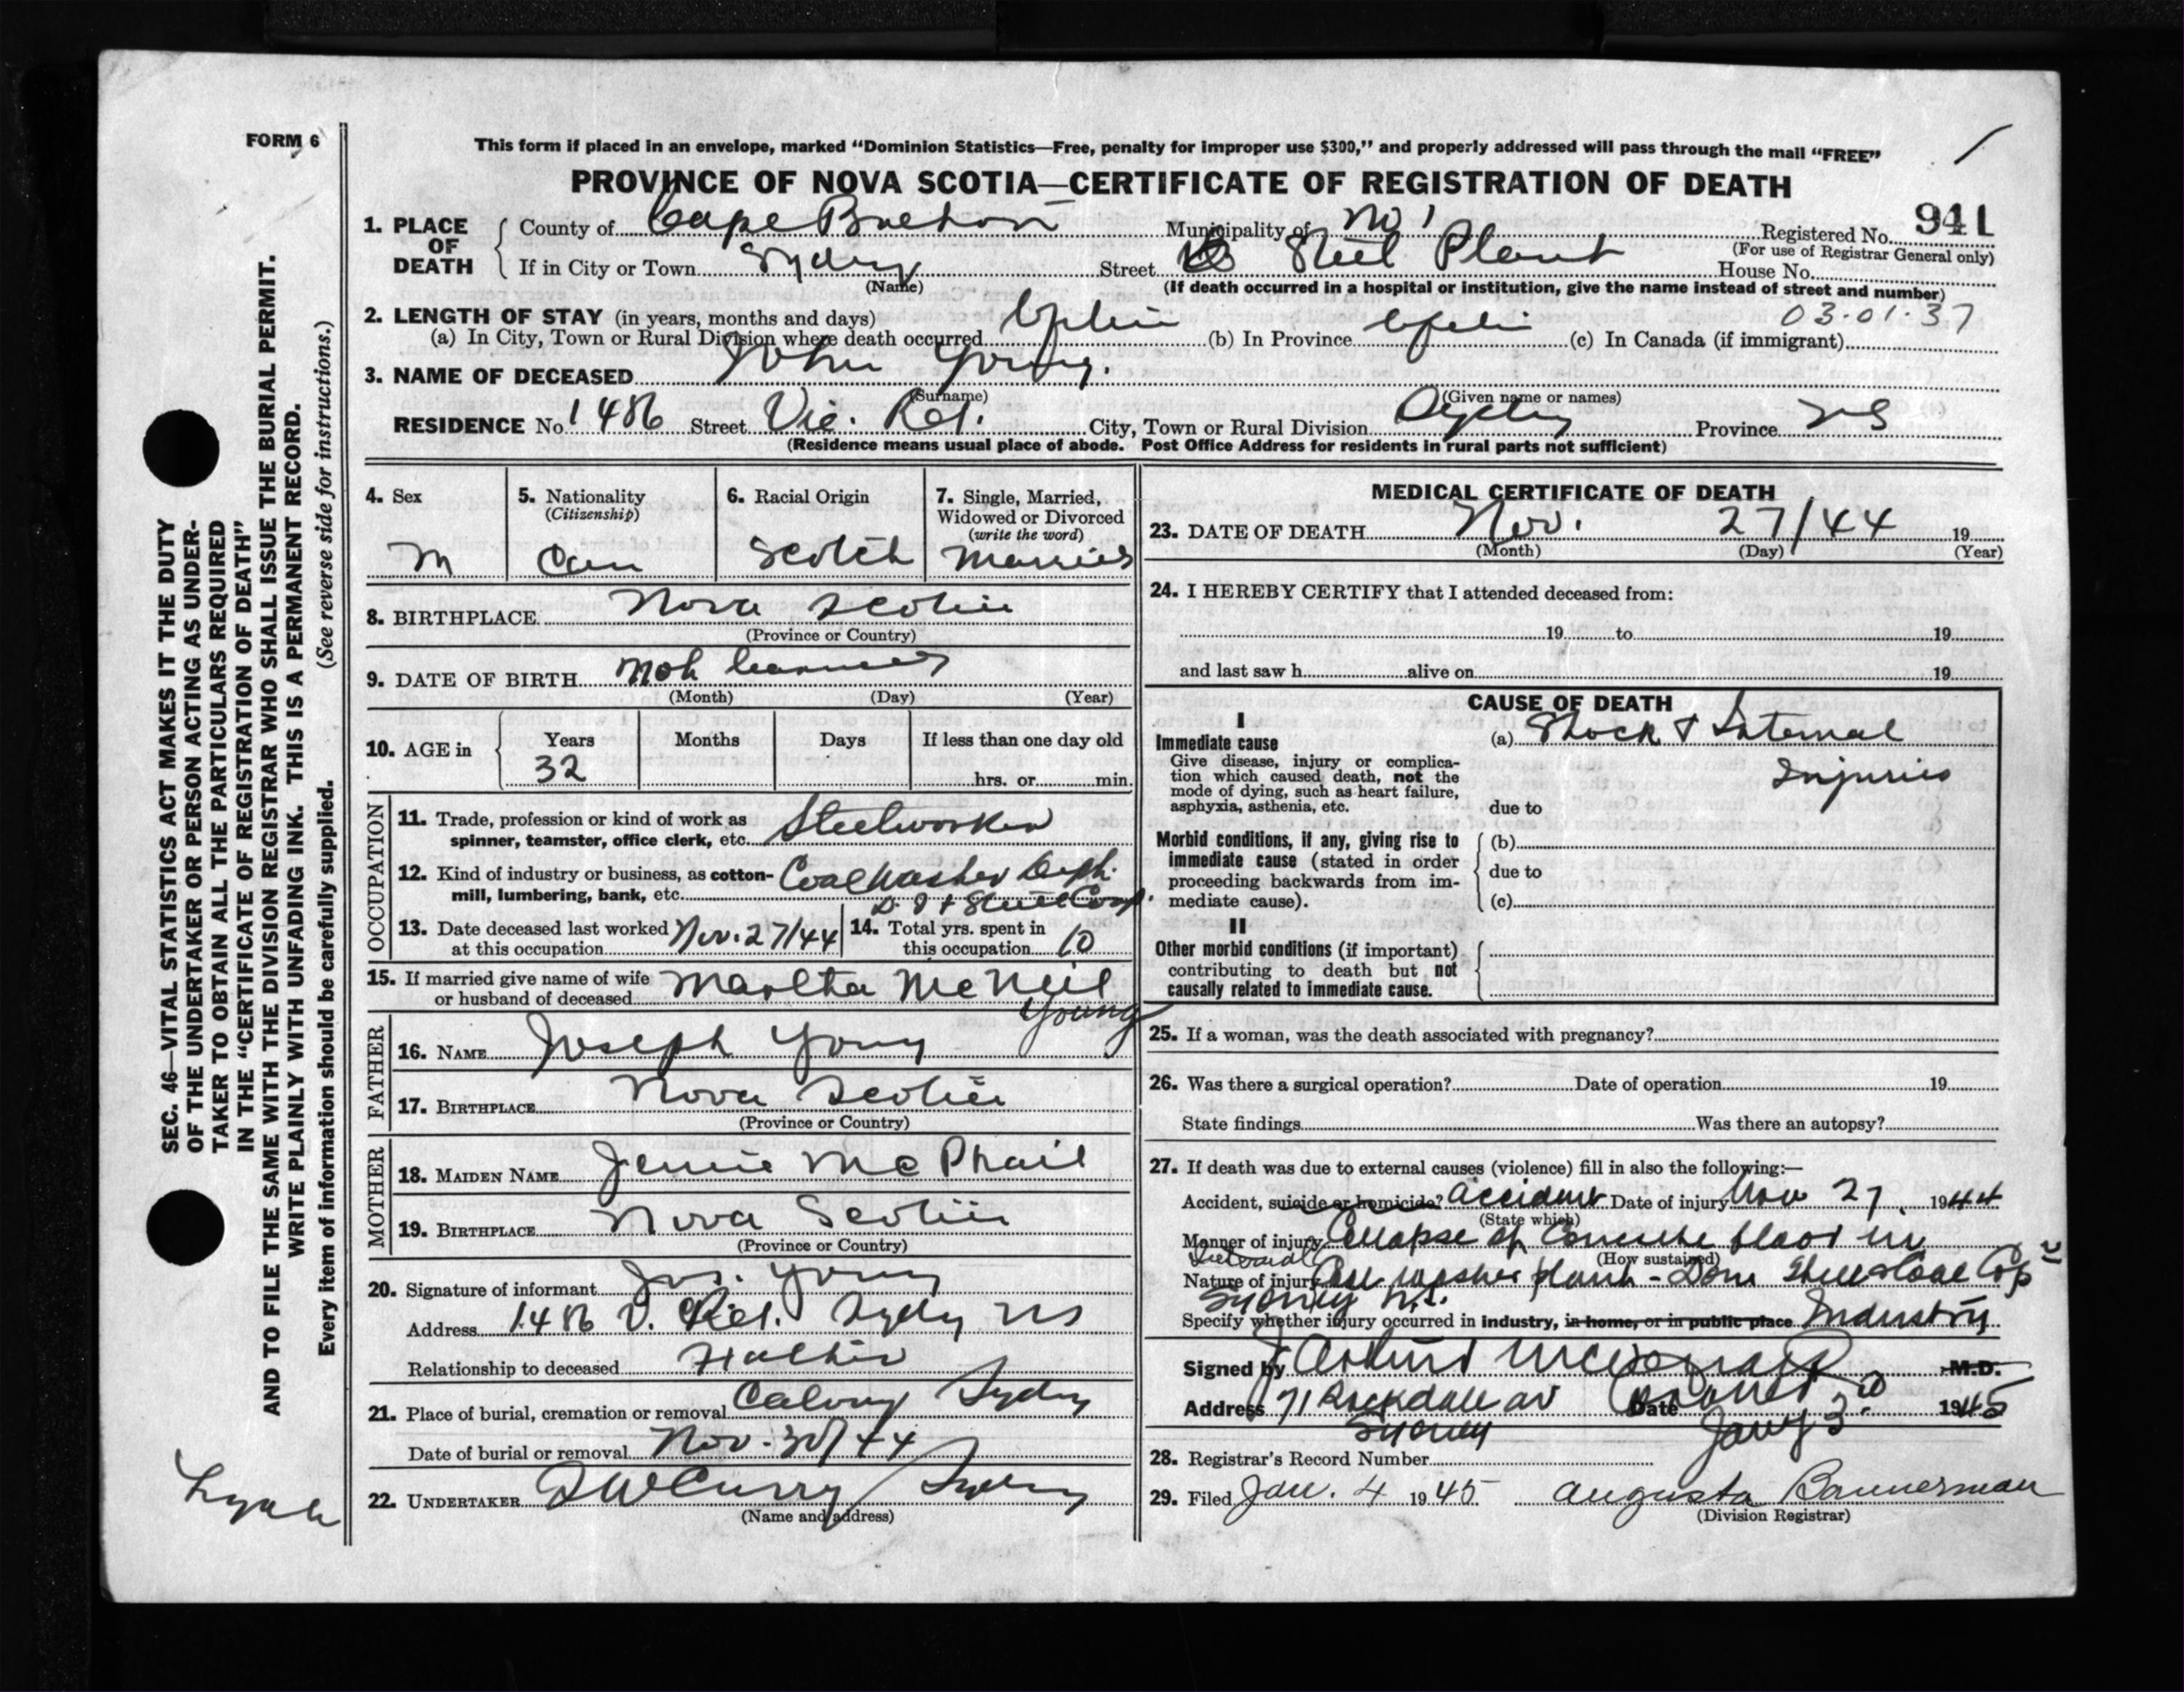 FORM 6
This form if placed in an envelope, marked “Dominion Statistics—Free, penalty for improper use $300,” and properly addressed will pass through the mail “FREE”
PROVINCE OF NOVA SCOTIA—CERTIFICATE OF REGISTRATION OF DEATH
1. PLACE OF DEATH County of Cape Breton Municipality of No 1 Registered No. 941
(For use of Registrar General only)
If in City or Town Sydney Street Steel Plant House No.
(Name) (If death occurred in a hospital or institution, give the name instead of street and number)
03-01-37
2. LENGTH OF STAY (in years, months and days)
(a) In City, Town or Rural Division where death occurred (b) In Province (c) In Canada (if immigrant)
3. NAME OF DECEASED John Young.
(Surname) (Given name or names)
RESIDENCE No. 1486 Street Vic. Rd. City, Town or Rural Division Sydney Province NS
(Residence means usual place of abode. Post Office Address for residents in rural parts not sufficient)
4. Sex 5. Nationality 6. Racial Origin 7. Single, Married,
(Citizenship) Widowed or Divorced
(write the word)
M Can Scotch Married
8. BIRTHPLACE Nova Scotia
(Province or Country)
9. DATE OF BIRTH Not
(Month) (Day) (Year)
10. AGE in Years Months Days If less than one day old
32 hrs. or min.
OCCUPATION
11. Trade, profession or kind of work as
spinner, teamster, office clerk, etc. Steelworker
12. Kind of industry or business, as cotton- Coal Washer Dept.
mill, lumbering, bank, etc. D. I & Steel Corp.
13. Date deceased last worked Nov. 27/44 14. Total yrs. spent in
at this occupation this occupation 10
15. If married give name of wife Martha McNeil
or husband of deceased Young
FATHER
16. NAME Joseph Young
17. BIRTHPLACE Nova Scotia
(Province or Country)
MOTHER
18. MAIDEN NAME Jennie McPhail
19. BIRTHPLACE Nova Scotia
(Province or Country)
20. Signature of informant Jos. Young
Address 1486 V. Rd. Sydney NS
Relationship to deceased Father
21. Place of burial, cremation or removal Calvary Sydney
Date of burial or removal Nov. 30/44
22. UNDERTAKER Curry Sydney
(Name and address)
MEDICAL CERTIFICATE OF DEATH
23. DATE OF DEATH Nov. 27/44 19
(Month) (Day) (Year)
24. I HEREBY CERTIFY that I attended deceased from:
19 to 19
and last saw h alive on 19
CAUSE OF DEATH
I
Immediate cause (a) Shock & Internal
Give disease, injury or complica- Injuries
tion which caused death, not the
mode of dying, such as heart failure,
asphyxia, asthenia, etc. due to
Morbid conditions, if any, giving rise to (b)
immediate cause (stated in order
proceeding backwards from im- due to
mediate cause). (c)
II
Other morbid conditions (if important)
contributing to death but not
causally related to immediate cause.
25. If a woman, was the death associated with pregnancy?
26. Was there a surgical operation? Date of operation 19
State findings Was there an autopsy?
27. If death was due to external causes (violence) fill in also the following:—
Accident, suicide or homicide? Accident Date of injury Nov 27 1944
(State which)
Manner of injury Collapse of Concrete floor in
(How sustained)
Nature of injury Coal washer plant - Dom Steel & Coal Corp
Sydney N.S.
Specify whether injury occurred in industry, in home, or in public place Industry
Signed by M.D.
Address 71 Rockdale av Date Jany 3. 1945
Sydney Coroner
28. Registrar's Record Number
29. Filed Jan. 4 1945 Augusta Bannerman
(Division Registrar)
SEC. 46—VITAL STATISTICS ACT MAKES IT THE DUTY
OF THE UNDERTAKER OR PERSON ACTING AS UNDER-
TAKER TO OBTAIN ALL THE PARTICULARS REQUIRED
IN THE “CERTIFICATE OF REGISTRATION OF DEATH”
AND TO FILE THE SAME WITH THE DIVISION REGISTRAR WHO SHALL ISSUE THE BURIAL PERMIT.
WRITE PLAINLY WITH UNFADING INK. THIS IS A PERMANENT RECORD.
Every item of information should be carefully supplied. (See reverse side for instructions.)